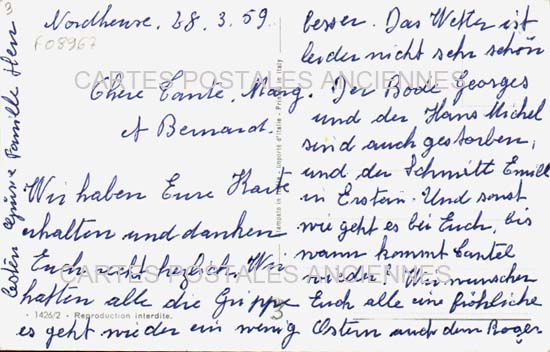 Nordheuse, 28.3.59.
F08967
Chere Tante, Marg.
et Bernard.
Wir haben Eure Karte
erhalten und danken
Euch recht herzlich, Wir
hatten alle die Grippe
es geht wieder ein wenig
besser. Das Wetter ist
leider nicht sehr schön
Der Bode Georges
und der Hans Michel
sind auch gestorben,
und der Schmitt Emile
in Erstein. Und sonst,
wie geht es bei Euch, bis
wann kommt Tantel
wieder? Wir wunschen
Euch alle eine fröhliche
Ostern auch dem Roger
Familie Herr
3
CARTES POSTALES ANCIENNES
CARTES POSTALES ANCIENNES
- 1426/2 - Reproduction interdite.
Stampato in Italia - Importé d'Italie - Printed in Italy
3